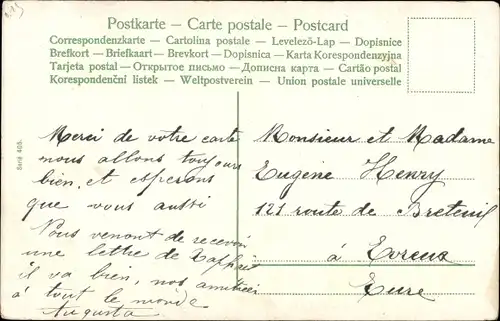 Postkarte — Carte postale — Postcard
Correspondenzkarte — Cartolina postale — Levelező-Lap — Dopisnice
Brefkort — Briefkaart — Brevkort — Dopisnica — Karta Korespondenzyjna
Tarjeta postal — Открытое письмо — Дописна карта — Cartão postal
Korespondenční listek — Weltpostverein — Union postale universelle
Serie 405.
Merci de votre carte
nous allons toujours
bien, et esperons
que vous aussi
Nous venont de recevoir
une lettre de
il va bien, nos amitiées
à tout le monde
Augusta
Monsieur et Madame
Eugène Henry
121 route de Breteuil
à Evreux
Eure